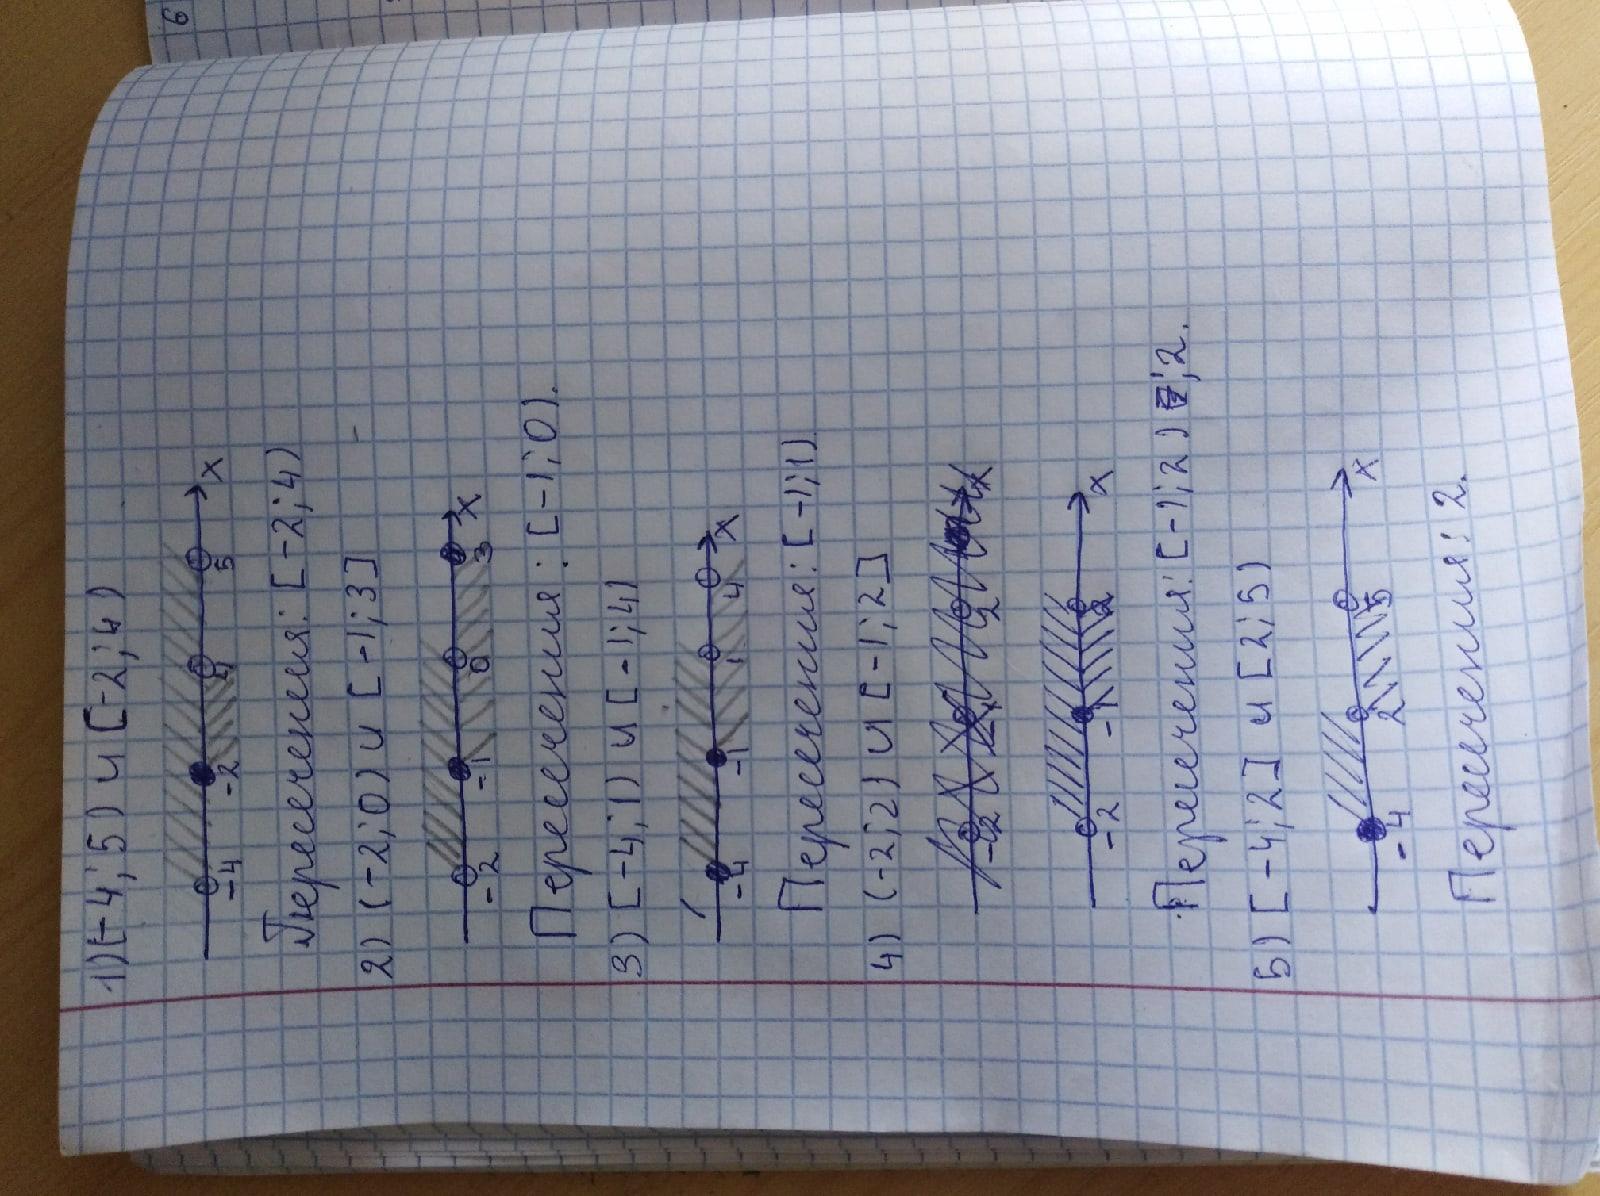 1) (-4; 5) и [-2; 4)
-4 -2 4 5 x
Пересечения: [-2; 4)
2) (-2; 0) и [-1; 3]
-2 -1 0 3 x
Пересечения: [-1; 0).
3) [-4; 1) и [-1; 4)
-4 -1 1 4 x
Пересечения: [-1; 1)
4) (-2; 2) и [-1; 2]
-2 -1 2 x
Пересечения: [-1; 2) ; 2.
5) [-4; 2] и [2; 5)
-4 2 5 x
Пересечения: 2.
6